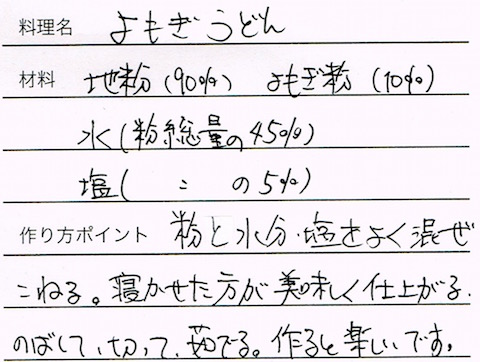 料理名 よもぎうどん
材料 地粉(90%) よもぎ粉(10%)
水(粉総量の45%)
塩( 〃 の5%)
作り方ポイント 粉と水分・塩をよく混ぜ
こねる。寝かせた方が美味しく仕上がる。
のばして、切って、茹でる。作ると楽しいです。